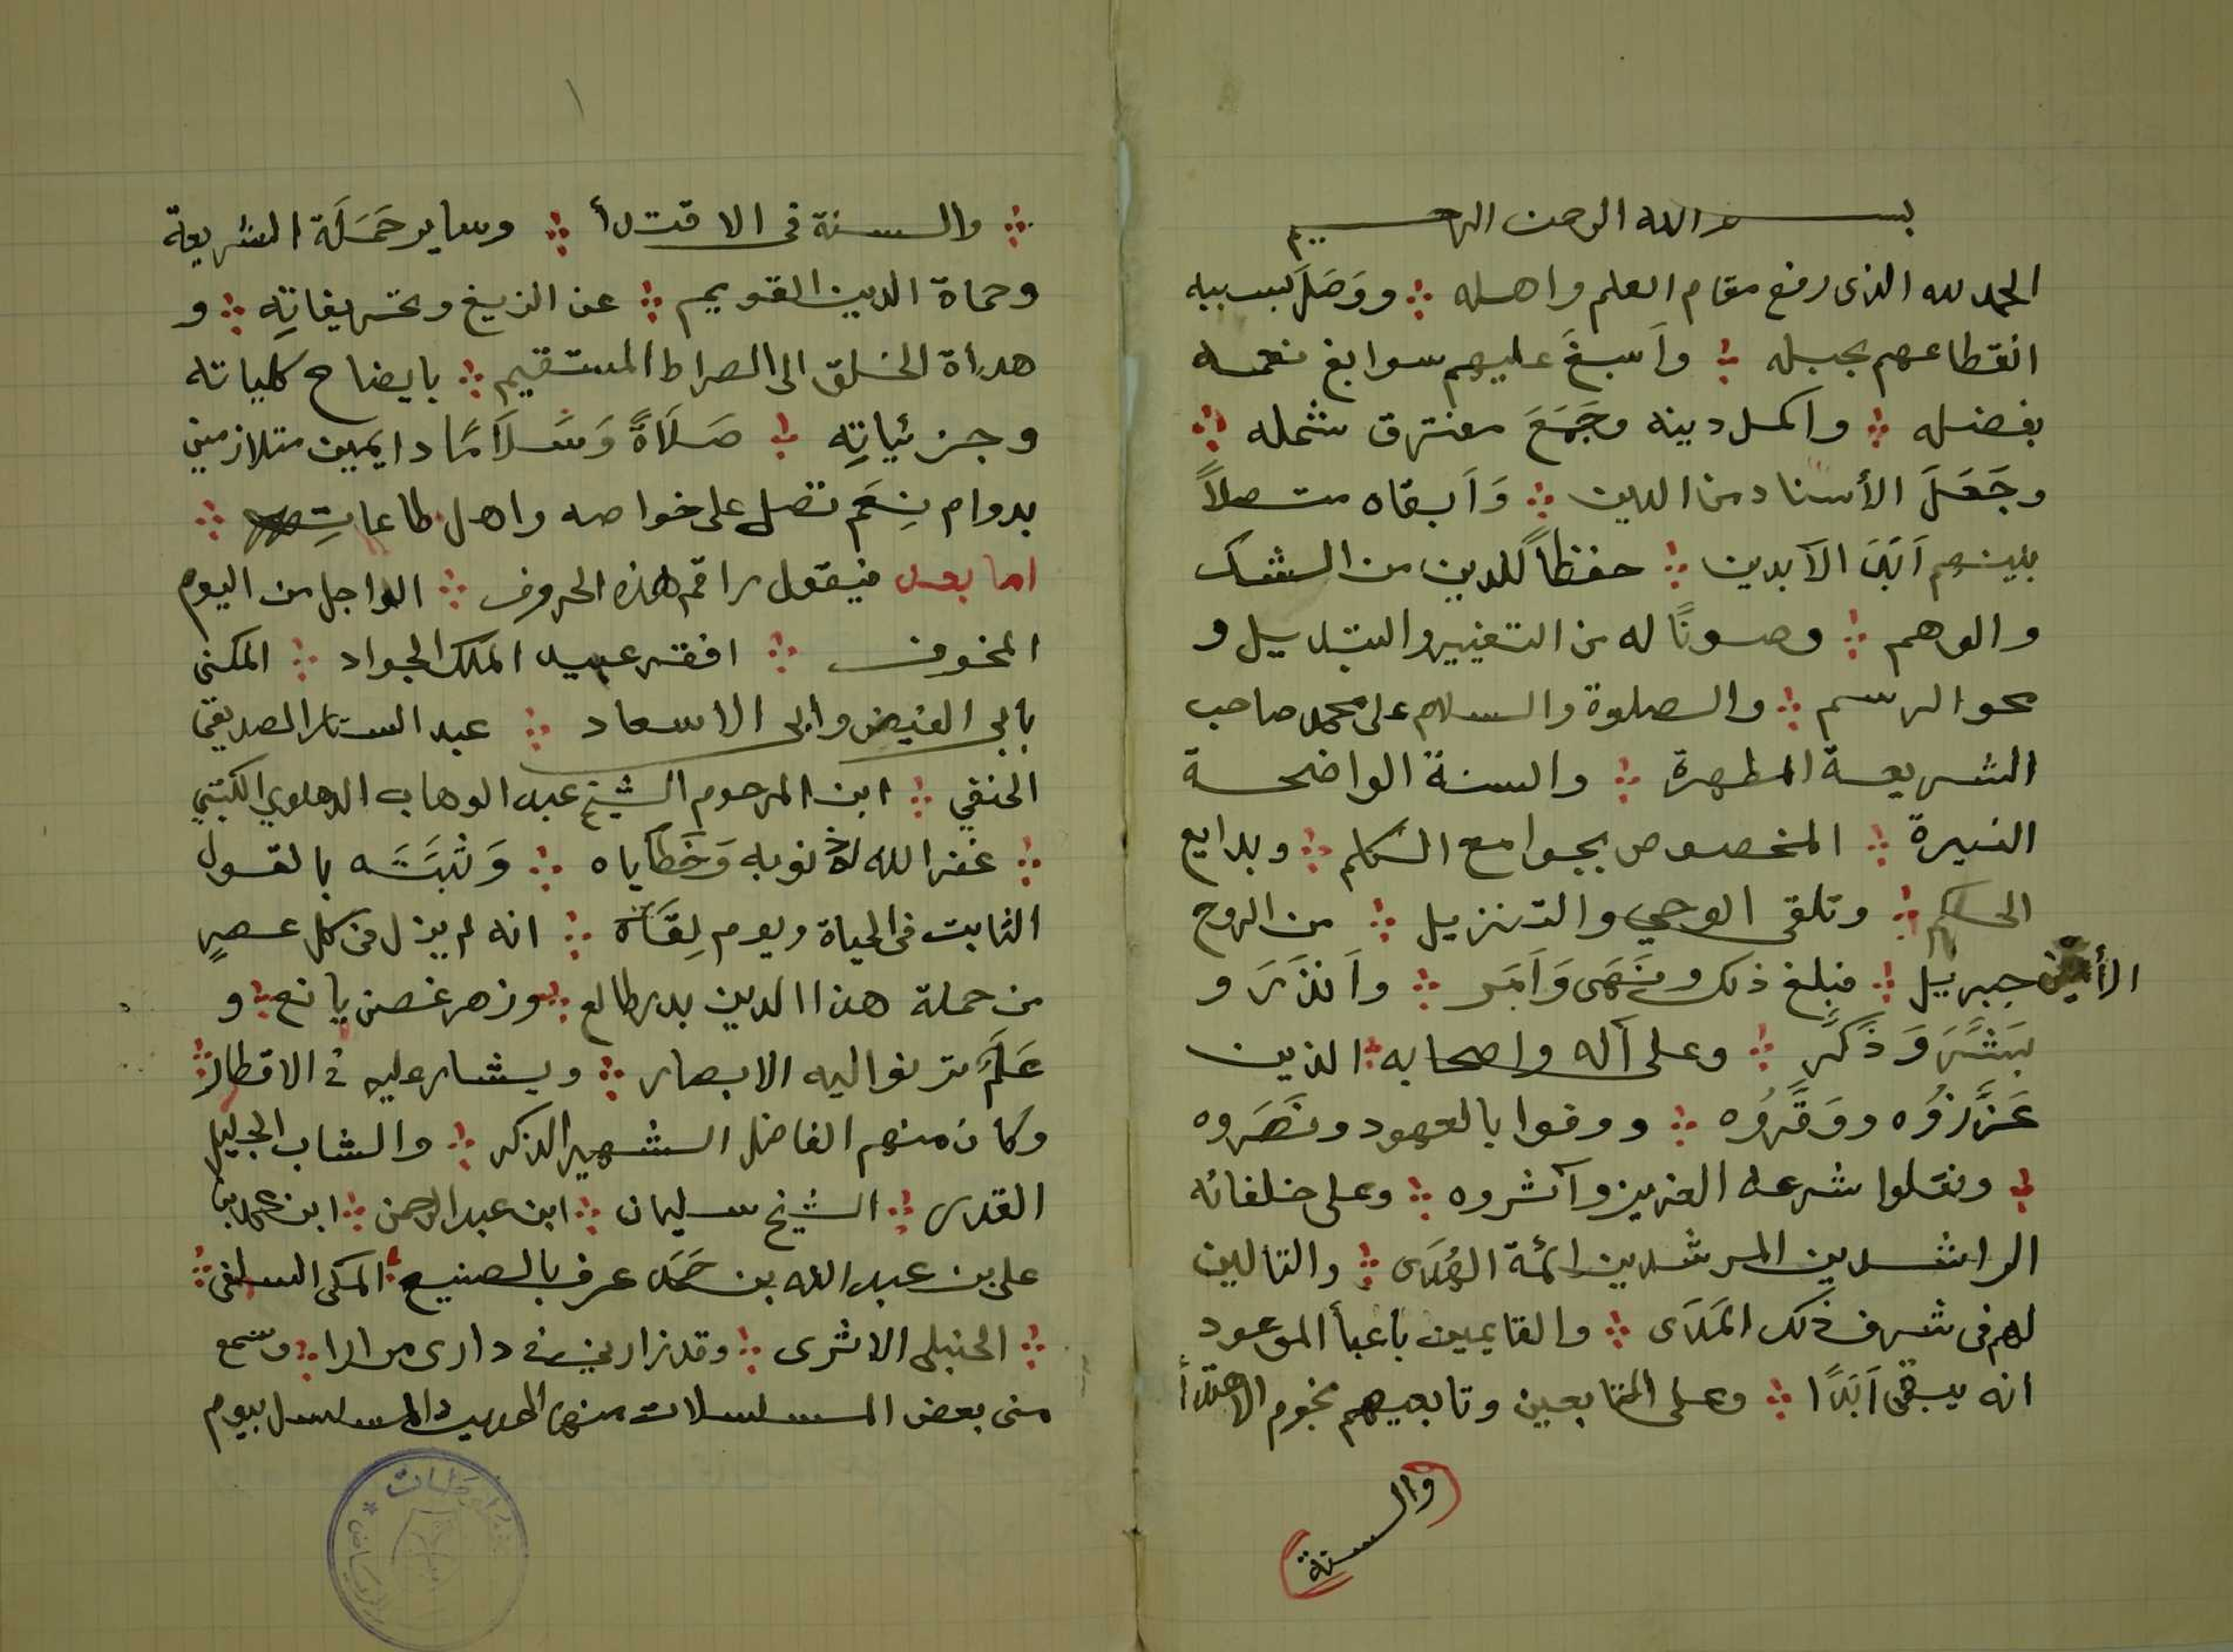 بسم الله الرحمن الرحيم
الحمد لله الذى رفع مقام العلم واهله ⁘ ووَصَلَ بسببه
انقطاعهم بحبله ⁘ وأسبغَ عليهم سوابغ نعمه
بفضله ⁘ واكمل دينه وجَمَعَ مفترق شمله ⁘
وجَعَلَ الأسناد من الدين ⁘ وَأبقاه متصلاً
بينهم اَبَدَ الآبدين ⁘ حفظاً للدين من الشك
والوهم ⁘ وصونًا له من التغيير والتبديل و
محو الرسم ⁘ والصلوة والسلام على محمد صاحب
الشريعة المطهرة ⁘ والسنة الواضحة
النيرة ⁘ المخصوص بجوامع الكلم ⁘ وبدايع
الحكم ⁘ وتلقى الوحي والتنزيل ⁘ من الروح
الأمين جبريل ⁘ فبلغ ذلك ونَهَى وَاَمَر ⁘ واَنذَرَ و
بَشَّرَ وَذَكَّر ⁘ وعلى آله واصحابه ⁘ الذين
عَزَّرُوه ووَقَّرُوه ⁘ ووفوا بالعهود ونَصَروه
⁘ ونقلوا شرعه العزيز وآثروه ⁘ وعلى خلفائه
الراشدين المرشدين ائمة الهُدَى ⁘ والتالين
لهم فى شرف ذلك المَدَى ⁘ والقايمين باعبأ الموعود
انه يبقى اَبَدًا ⁘ وعلى التابعين وتابعيهم نجوم الاهتدأ
(والسنة)
⁘ والسنة فى الاقتدأ ⁘ وساير حَمَلَة الشريعة
وحماة الدين القويم ⁘ عن الزيغ وتحريفاتِه ⁘ و
هدأة الخلق الى الصراط المستقيم ⁘ بايضاح كلياته
وجزئياتِه ⁘ صَلَاةً وَسَلَامًا دايمين متلازمين
بدوام نِعَم تصل على خواصه واهل طاعاتِه ⁘
اما بعد فيقول راقم هذه الحروف ⁘ الواجل من اليوم
المخوف ⁘ افقر عبيد الملك الجواد ⁘ المكنى
بابى الفيض وابى الاسعاد ⁘ عبد الستار الصديقى
الحنفي ⁘ ابن المرحوم الشيخ عبد الوهاب الدهلوي الكتبي
⁘ غفر الله له ذنوبه وَخَطَاياه ⁘ وَثَبَّتَه بالقول
الثابت فى الحياة ويوم لِقَاه ⁘ انه لم يزل فى كل عصرٍ
من حملة هذا الدين بدر طالع ⁘ وزهر غصن يانع ⁘ و
عَلَم ترنو اليه الابصار ⁘ ويشار عليه فى الاقطار ⁘
وكان منهم الفاضل الشهير الذكر ⁘ والشاب الجليل
القدر ⁘ الشيخ سليمان ⁘ ابن عبد الرحمن ⁘ ابن محمد بن
على بن عبد الله بن حَمَد عرف بالصنيع ⁘ المكى السلفى ⁘
⁘ الحنبلى الاثرى ⁘ وقد زارنى فى دارى مرارا ⁘ وسمع
منى بعض المسلسلات منها الحديث المسلسل بيوم